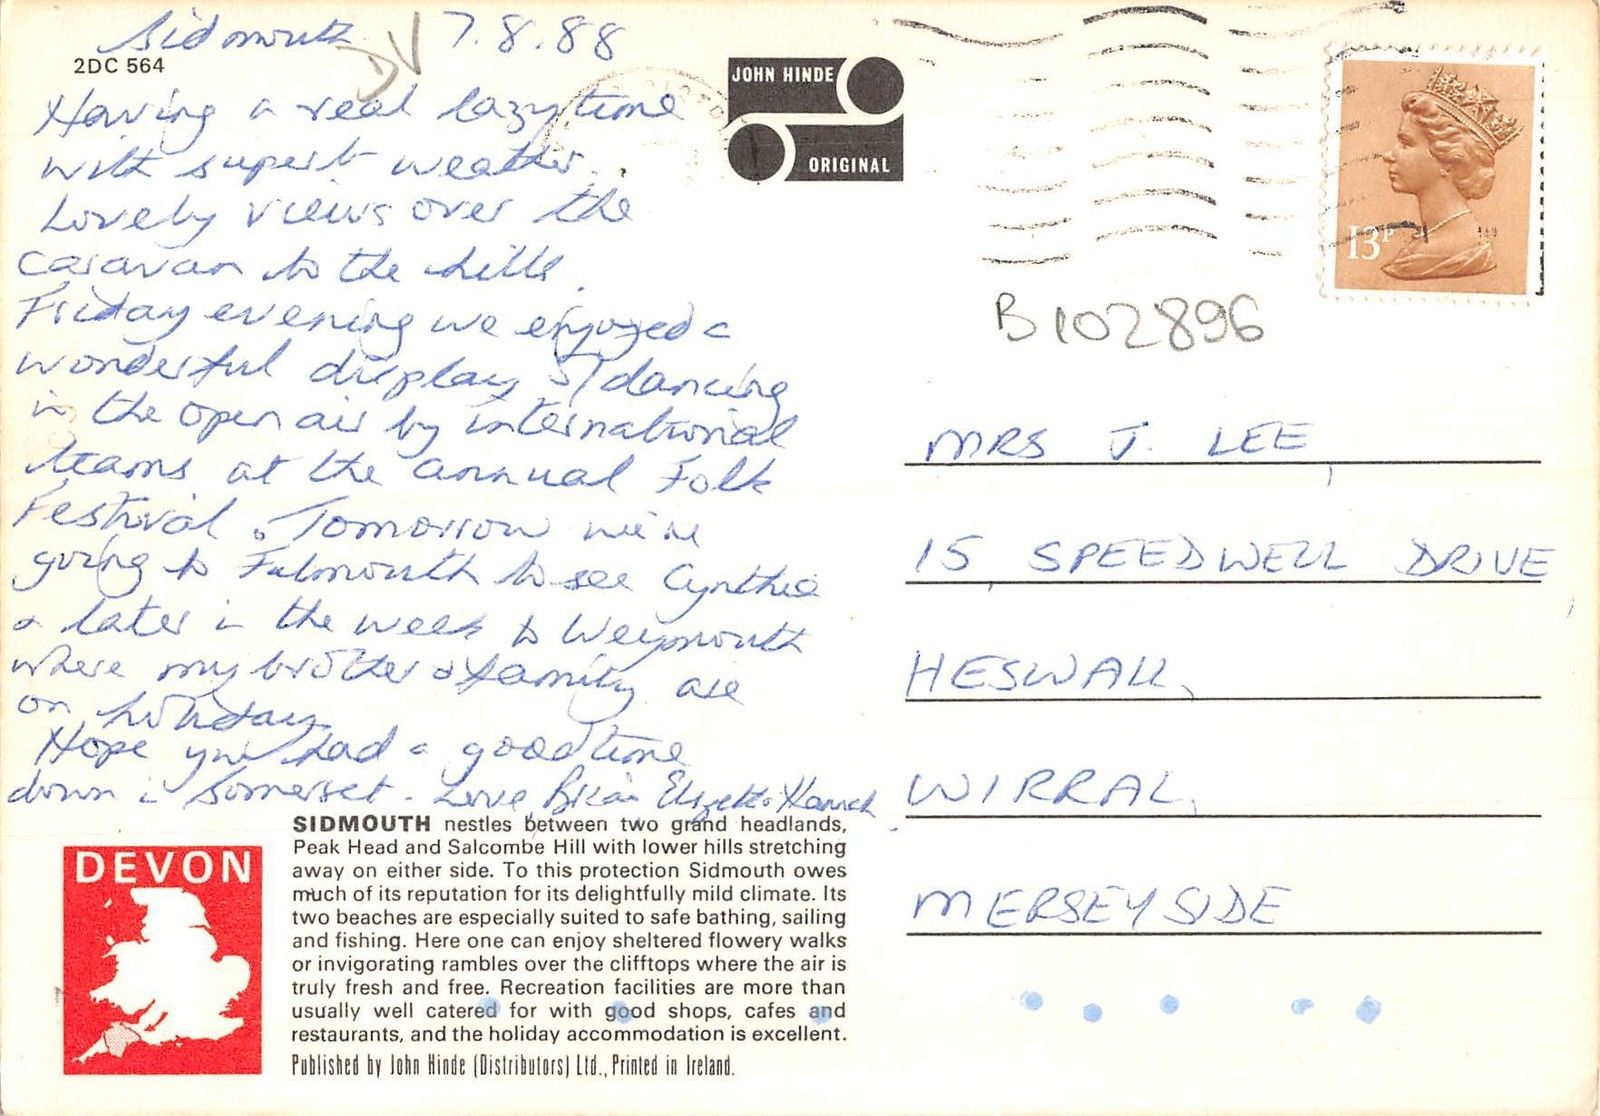 Sidmouth 7.8.88
DV
2DC 564
Having a real lazy time
with superb weather.
Lovely views over the
caravan to the hills.
Friday evening we enjoyed a
wonderful display of dancing
in the open air by international
teams at the annual Folk
Festival. Tomorrow we're
going to Falmouth to see Cynthia
& later in the week to Weymouth
where my brother & family are
on holiday.
Hope you had a good time
down in Somerset. Love, Brian Elizabeth & Hannah
JOHN HINDE
ORIGINAL
13P
B102896
MRS J. LEE,
15, SPEEDWELL DRIVE,
HESWALL,
WIRRAL,
MERSEYSIDE
DEVON
SIDMOUTH nestles between two grand headlands,
Peak Head and Salcombe Hill with lower hills stretching
away on either side. To this protection Sidmouth owes
much of its reputation for its delightfully mild climate. Its
two beaches are especially suited to safe bathing, sailing
and fishing. Here one can enjoy sheltered flowery walks
or invigorating rambles over the clifftops where the air is
truly fresh and free. Recreation facilities are more than
usually well catered for with good shops, cafes and
restaurants, and the holiday accommodation is excellent.
Published by John Hinde (Distributors) Ltd., Printed in Ireland.